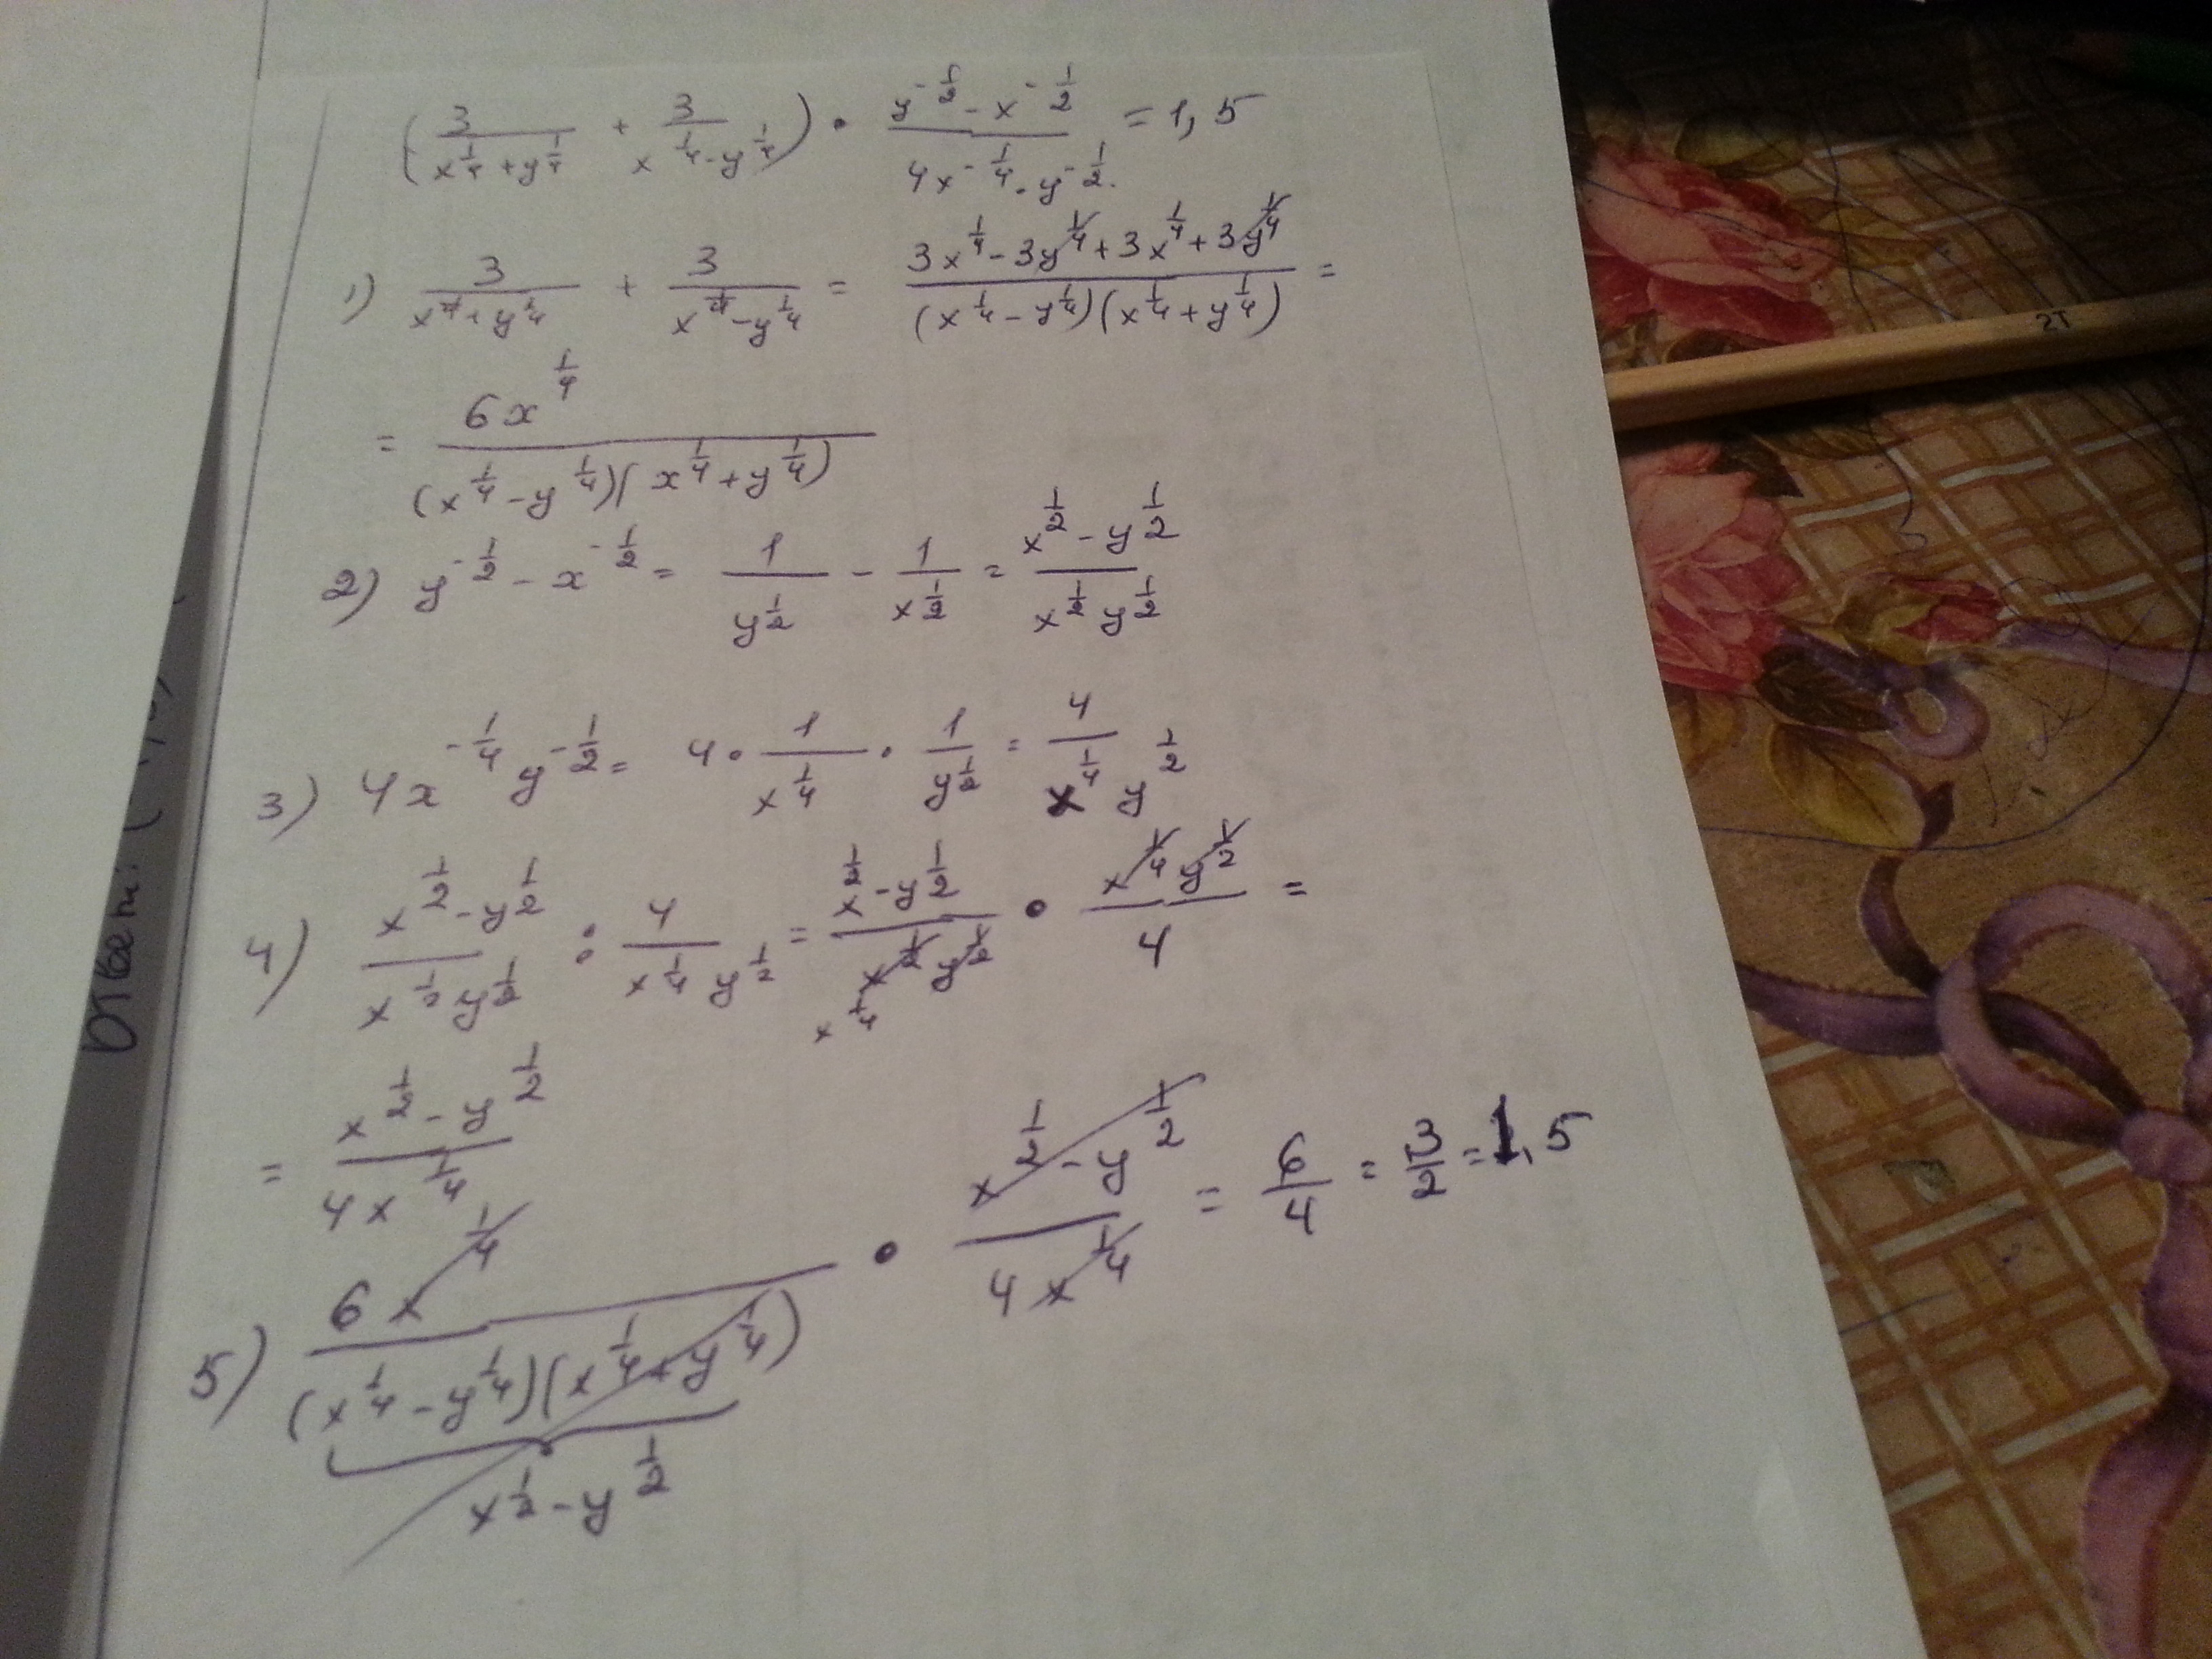 (3/(x^(1/4) + y^(1/4)) + 3/(x^(1/4) - y^(1/4))) · (y^(-1/2) - x^(-1/2))/(4x^(-1/4) · y^(-1/2)) = 1,5
1) 3/(x^(1/4) + y^(1/4)) + 3/(x^(1/4) - y^(1/4)) = (3x^(1/4) - 3y^(1/4) + 3x^(1/4) + 3y^(1/4))/((x^(1/4) - y^(1/4))(x^(1/4) + y^(1/4))) =
= 6x^(1/4)/((x^(1/4) - y^(1/4))(x^(1/4) + y^(1/4)))
2) y^(-1/2) - x^(-1/2) = 1/y^(1/2) - 1/x^(1/2) = (x^(1/2) - y^(1/2))/(x^(1/2) y^(1/2))
3) 4x^(-1/4) y^(-1/2) = 4 · 1/x^(1/4) · 1/y^(1/2) = 4/(x^(1/4) y^(1/2))
4) (x^(1/2) - y^(1/2))/(x^(1/2) y^(1/2)) : 4/(x^(1/4) y^(1/2)) = (x^(1/2) - y^(1/2))/(x^(1/2) y^(1/2)) · (x^(1/4) y^(1/2))/4 =
x^(1/4)
= (x^(1/2) - y^(1/2))/(4x^(1/4))
5) 6x^(1/4)/((x^(1/4) - y^(1/4))(x^(1/4) + y^(1/4))) · (x^(1/2) - y^(1/2))/(4x^(1/4)) = 6/4 = 3/2 = 1,5
x^(1/2) - y^(1/2)
Ответ: (
2T